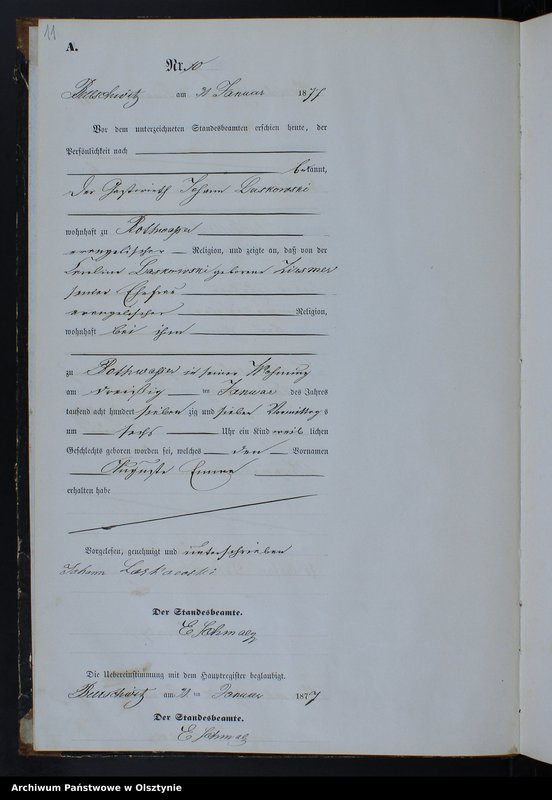 11
A.
Nr. 10
am 31 Januar 1877
Vor dem unterzeichneten Standesbeamten erschien heute, der
Persönlichkeit nach
bekannt,
Der Gastwirth Johann Laskowski
wohnhaft zu
evangelischer Religion, und zeigte an, daß von der
Laskowski geborene
seiner Ehefrau
evangelischer Religion,
wohnhaft bei ihm
zu in seiner Wohnung
am dreißig ten Januar des Jahres
tausend acht hundert sieben zig und sieben Vormittags
um sechs Uhr ein Kind weib lichen
Geschlechts geboren worden sei, welches den Vornamen
Auguste
erhalten habe
Vorgelesen, genehmigt und unterschrieben
Johann Laskowski
Der Standesbeamte.
Die Uebereinstimmung mit dem Hauptregister beglaubigt.
am 31 ten Januar 1877
Der Standesbeamte.
Archiwum Państwowe w Olsztynie